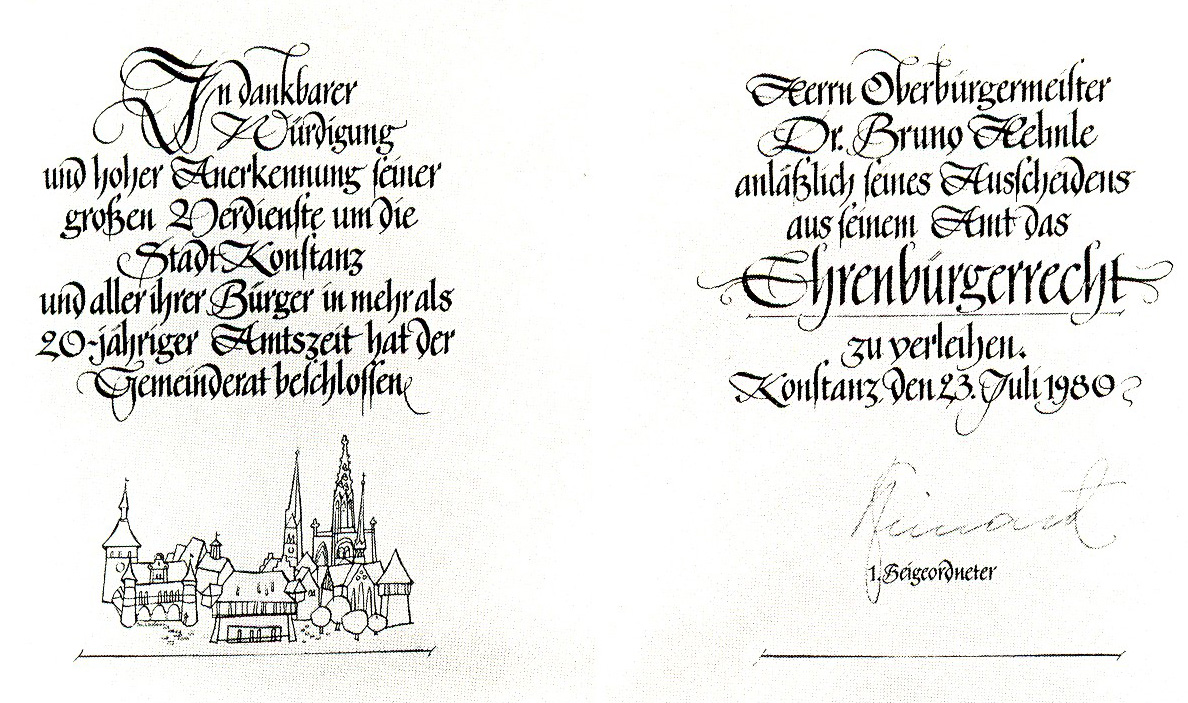 In dankbarer
Würdigung
und hoher Anerkennung seiner
großen Verdienste um die
Stadt Konstanz
und aller ihrer Bürger in mehr als
20-jähriger Amtszeit hat der
Gemeinderat beschlossen,
Herrn Oberbürgermeister
Dr. Bruno Helmle
anläßlich seines Ausscheidens
aus seinem Amt das
Ehrenbürgerrecht
zu verleihen.
Konstanz, den 23. Juli 1980
1. Beigeordneter